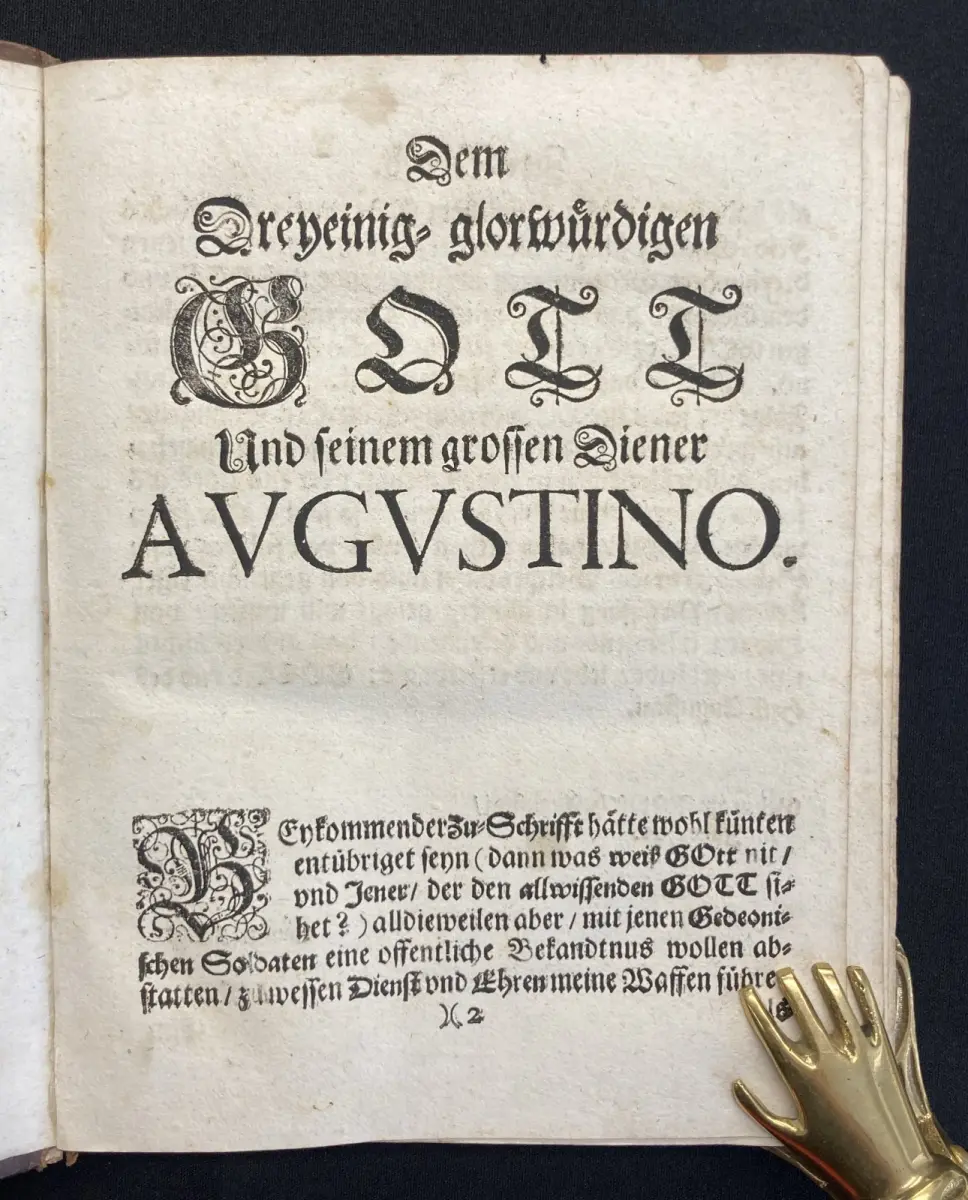 Dem
Dreyeinig- glorwürdigen
GOTT
Und seinem grossen Diener
AVGVSTINO.
BEykommender Zu-Schrifft hätte wohl künten
entübriget seyn (dann was weiß GOtt nit /
vnd Jener / der den allwissenden GOTT si-
het? ) alldieweilen aber / mit jenen Gedeoni-
schen Soldaten eine offentliche Bekandtnus wollen ab-
statten / zu wessen Dienst vnd Ehren meine Waffen führe
)( 2